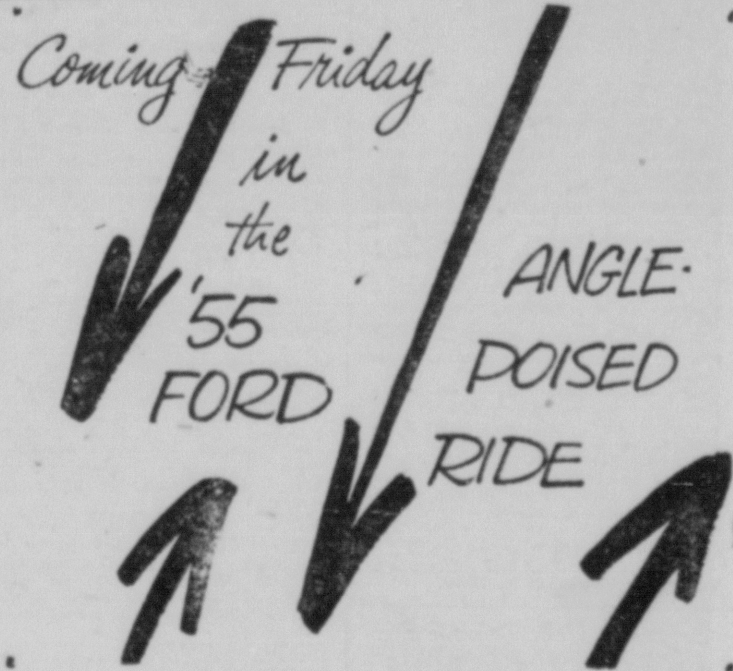 Coming Friday
in
the
'55
FORD
ANGLE-
POISED
RIDE